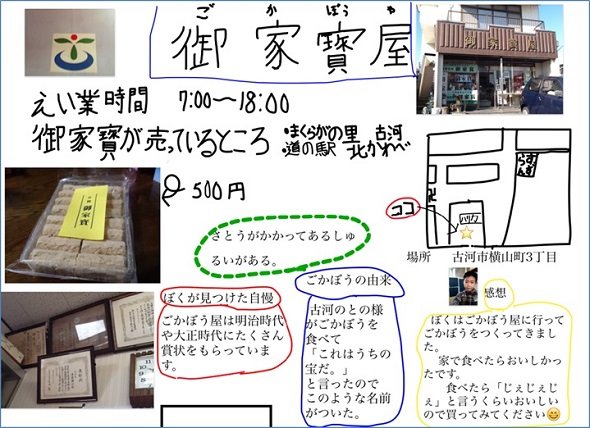 ご か ぼう や
御家寶屋
えい業時間 7:00〜18:00
御家寶が売っているところ
・まくらがの里 古河
・道の駅 北かわべ
500円
ココ
場所 古河市横山町3丁目
さとうがかかってあるしゅ
るいがある。
ぼくが見つけた自慢
ごかぼう屋は明治時代
や大正時代にたくさん
賞状をもらっていま
す。
ごかぼうの由来
古河のとの様
がごかぼうを
食べて
「これはうちの
宝だ。」
と言ったので
このような名前
がついた。
感想
ぼくはごかぼう屋に行って
ごかぼうをつくってきまし
た。
家で食べたらおいしかっ
たです。
食べたら「じぇじぇじ
ぇ」と言うくらいおいしい
ので買ってみてください😊